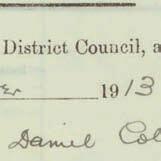 District Council, a
er 1913
Daniel Col